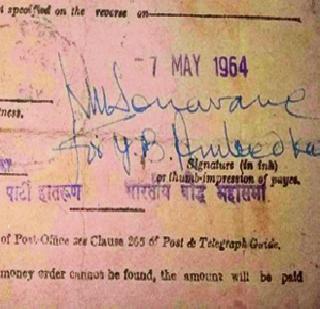 specified on the reverse on
7 MAY 1964
Sonavane
for Y. B. Ambedkar
ness.
Signature (in ink)
or thumb-impression of payee.
पार्टी भारतीय बौद्ध महासभा
of Post Office see Clause 265 of Post & Telegraph Guide.
money order cannot be found, the amount will be paid